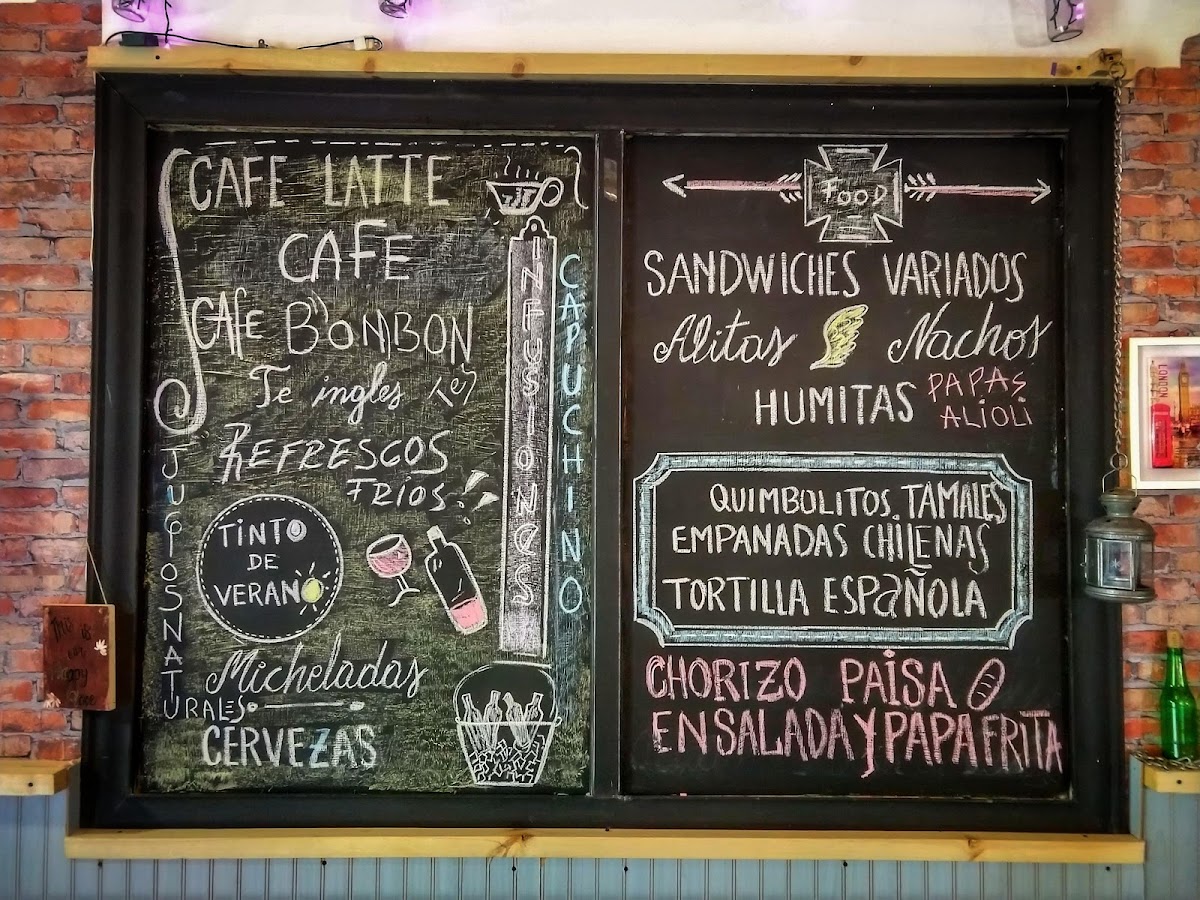 CAFE LATTE
CAFE
CAFE BOMBON
Te ingles
REFRESCOS
FRÍOS!
TINTO
DE
VERANO
Micheladas
CERVEZAS
JUGIOSNATURALES
INFUSIONES
CAPUCHINO
FOOD
SANDWICHES VARIADOS
Alitas Nachos
HUMITAS PAPAS
ALIOLI
QUIMBOLITOS TAMALES
EMPANADAS CHILENAS
TORTILLA ESPAÑOLA
CHORIZO PAISA
ENSALADA Y PAPA FRITA
LONDON
This is
our
happy